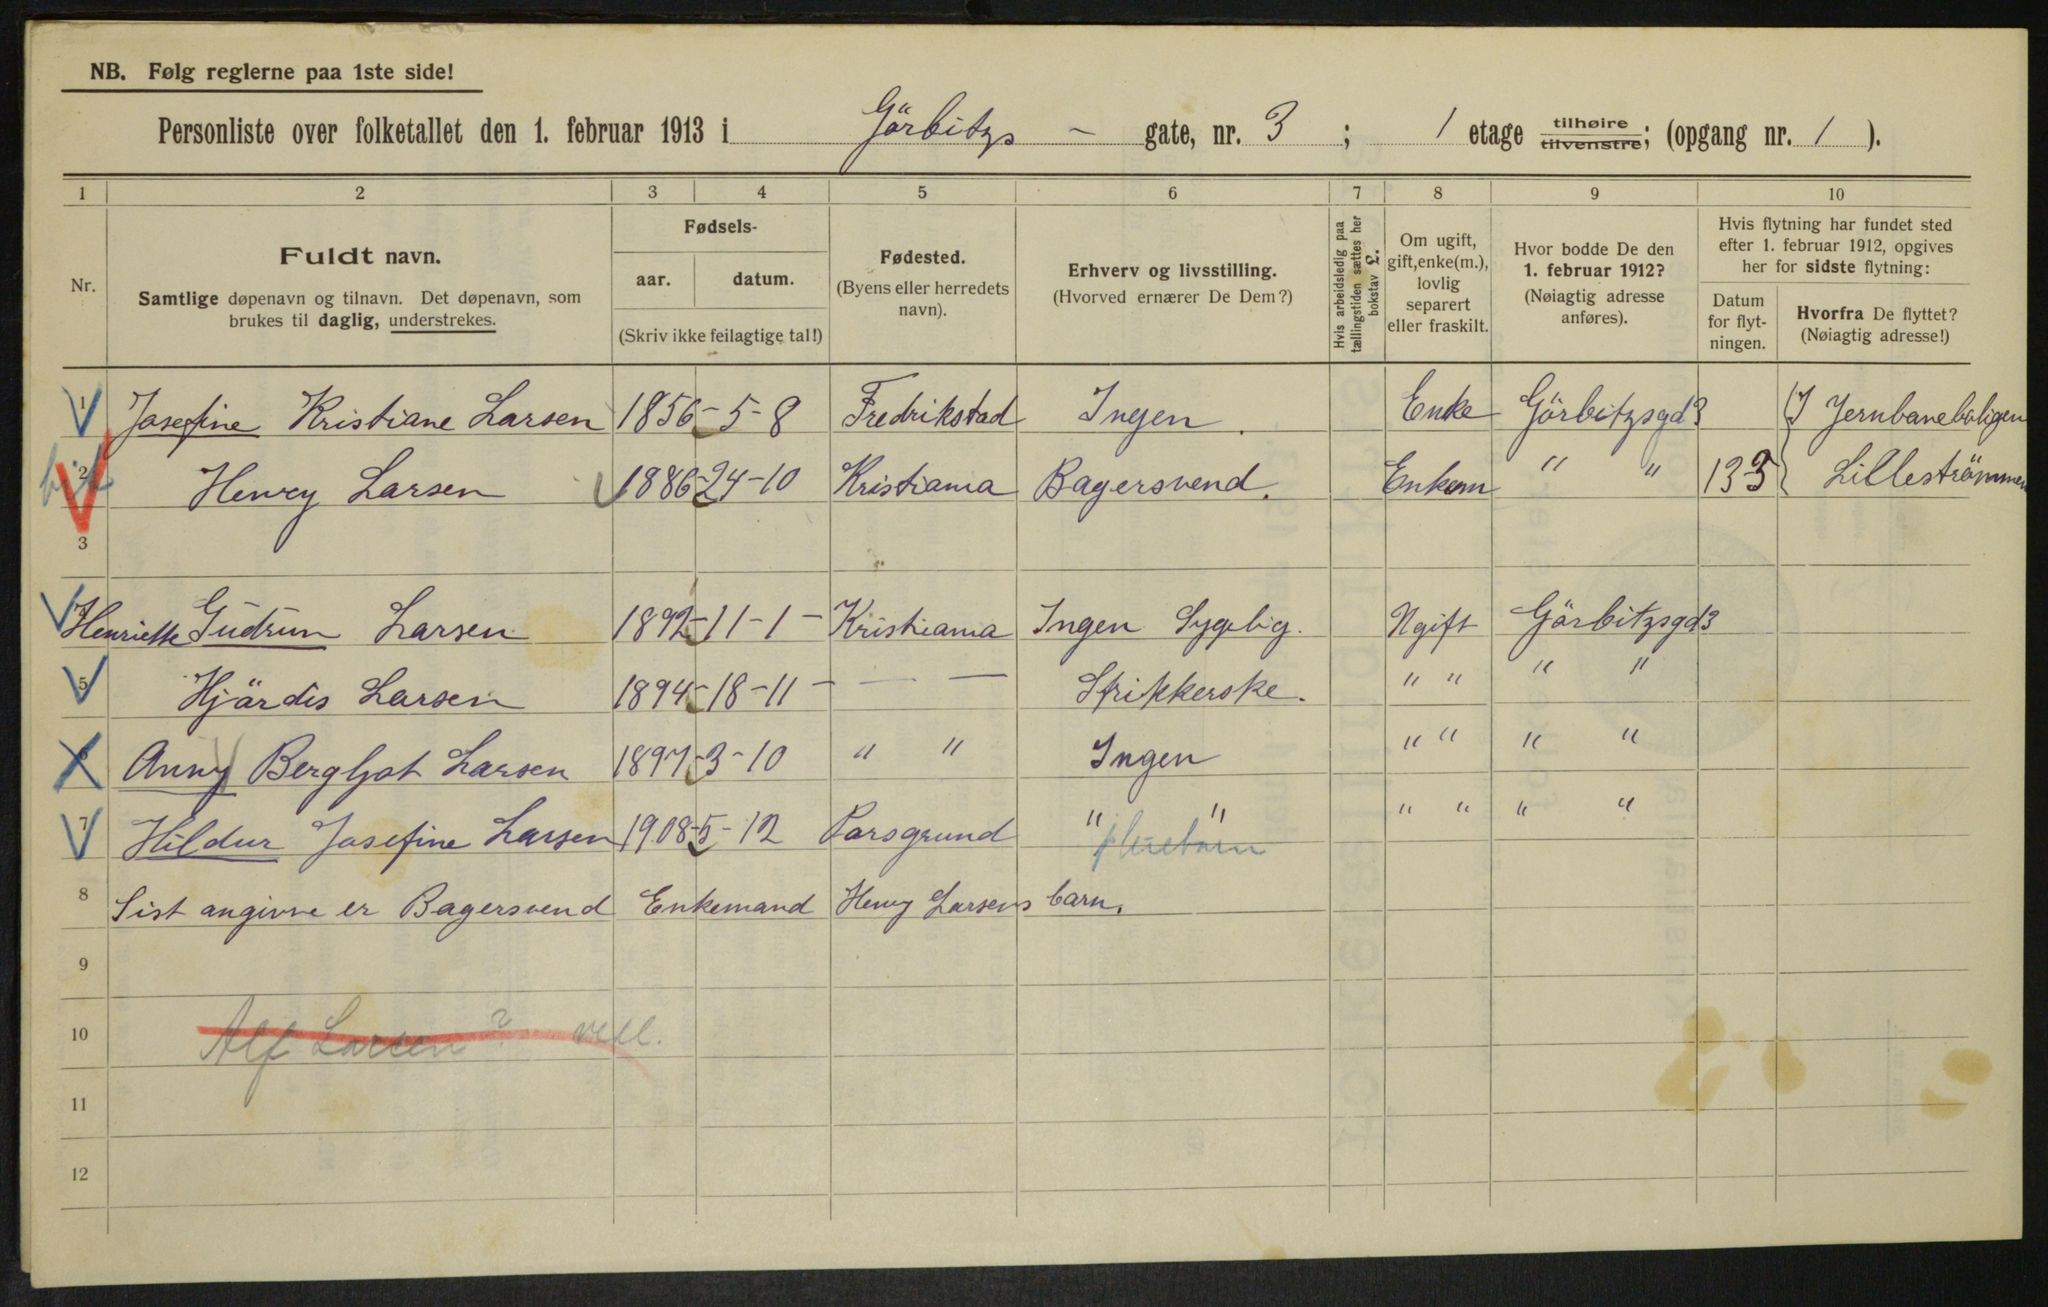 NB. Følg reglerne paa 1ste side!
Personliste over folketallet den 1. februar 1913 i Görbitzs - gate, nr. 3 ; 1 etage tilhøire tilvenstre; (opgang nr. 1 ).
1 2 3 4 5 6 7 8 9 10
Nr.
Fuldt navn.
Samtlige døpenavn og tilnavn. Det døpenavn, som
brukes til daglig, understrekes.
Fødsels-
aar. datum.
(Skriv ikke feilagtige tal!)
Fødested.
(Byens eller herredets
navn).
Erhverv og livsstilling.
(Hvorved ernærer De Dem?)
Hvis arbeidsledig paa
tællingstiden sættes her
bokstav L.
Om ugift,
gift, enke(m.),
lovlig
separert
eller fraskilt.
Hvor bodde De den
1. februar 1912?
(Nøiagtig adresse
anføres).
Hvis flytning har fundet sted
efter 1. februar 1912, opgives
her for sidste flytning:
Datum
for flyt-
ningen.
Hvorfra De flyttet?
(Nøiagtig adresse!)
1 Josefine Kristiane Larsen 1856-5-8 Fredrikstad Ingen. Enke Görbitzsgd3 I Jernbaneboligen
2 Henry Larsen 1886-24-10 Kristiania Bagersvend. Enkem " " Lilleströmmen
3
4 Henriette Gudrun Larsen 1892-11-1- Kristiania Ingen Sygelig. Ugift Görbitzsgd3
5 Hjördis Larsen 1894-18-11- — — Strikkerske. " " " "
6 Anny Bergljot Larsen 1897-3-10 " " Ingen " " " "
7 Hildur Josefine Larsen 1908-5-12 Porsgrund " " " " " "
8 Sist angivne er Bagersvend Enkemand Henry Larsens barn.
9
10 Alf Larsen ?
11
12